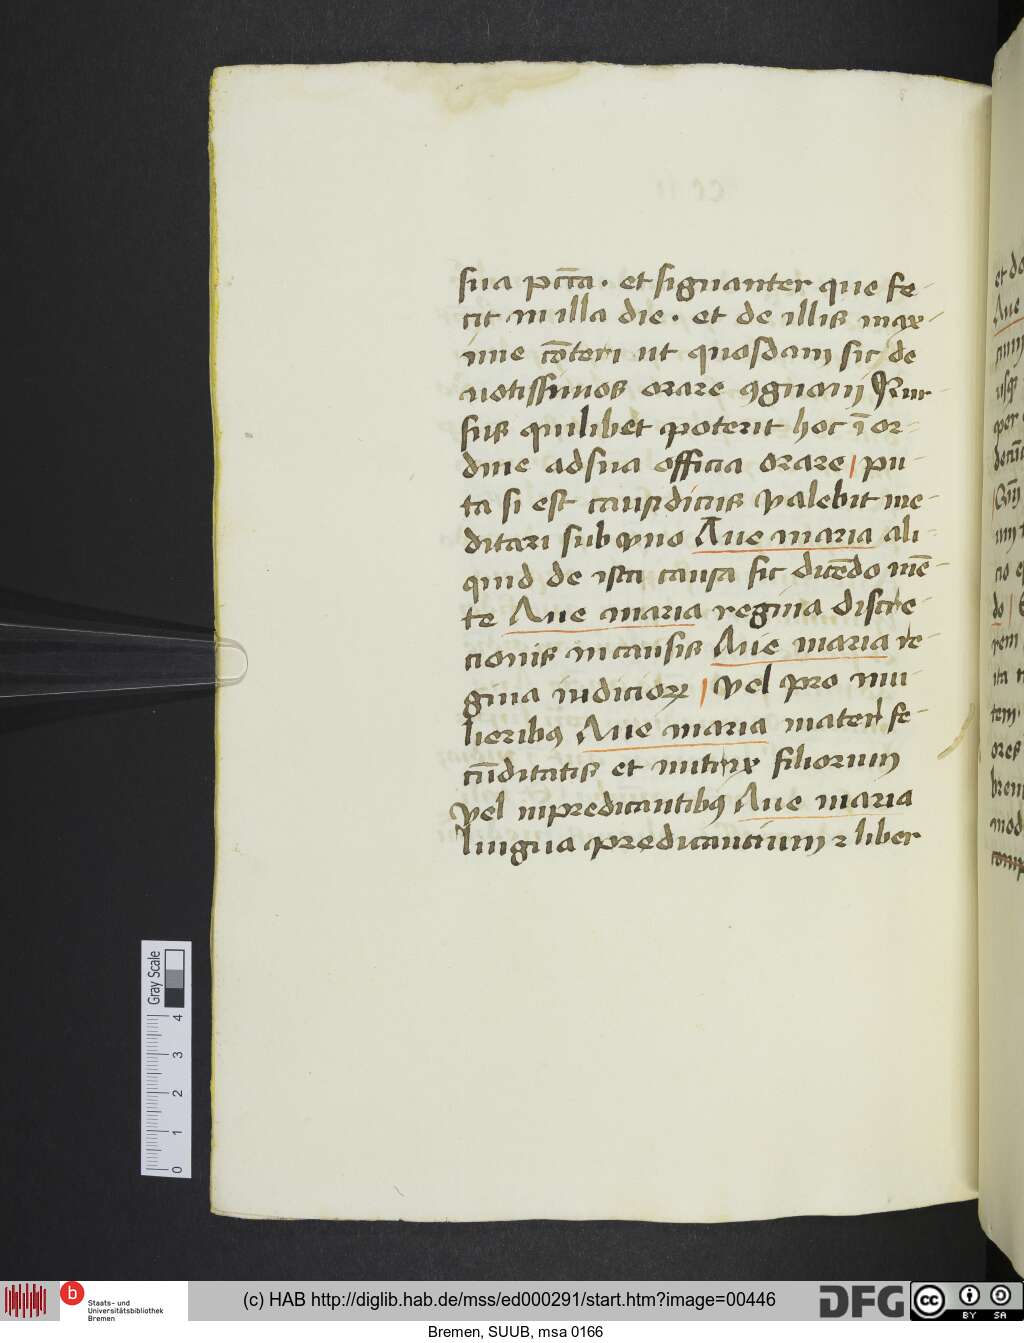 sua pcc̄ta · et signanter que fe-
cit in illa die · et de illis max-
ime cōteri ut quosdam sic de
uotissimos orare ꝯgnoui Rur-
sus quilibet poterit hoc ī or-
dine ad sua officia orare | pu-
ta si est causidicus valebit me-
ditari sub vno Aue maria ali-
quid de ista causa sic dicēdo mē-
te Aue maria regina discre-
cionis in causis Aue maria re-
gina iudicioꝝ | vel pro mu-
lieribꝰ Aue maria mater fe-
cūditatis et nutrix filiorum
vel in predicantibꝰ Aue maria
lingua predicancium ⁊ liber
et de
Aue
usqꝫ
per
cio
do |
rem
ita
tem·
ores
brem
mod
Gray Scale
0 1 2 3 4
b
Staats- und
Universitätsbibliothek
Bremen
(c) HAB http://diglib.hab.de/mss/ed000291/start.htm?image=00446
DFG
cc BY SA
Bremen, SUUB, msa 0166